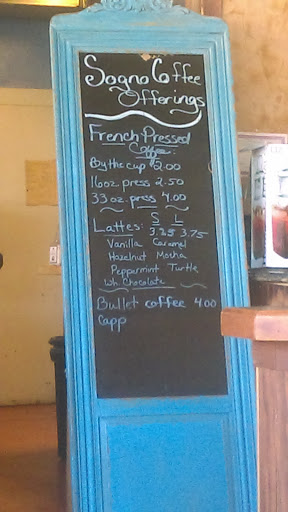 Sogno Coffee
Offerings
French Pressed
Coffee:
By the cup $2.00
16oz. press 2.50
33 oz. press 4.00
S L
Lattes: 3.25 3.75
Vanilla Caramel
Hazelnut Mocha
Peppermint Turtle
Wh. Chocolate
Bullet coffee 4.00
Capp